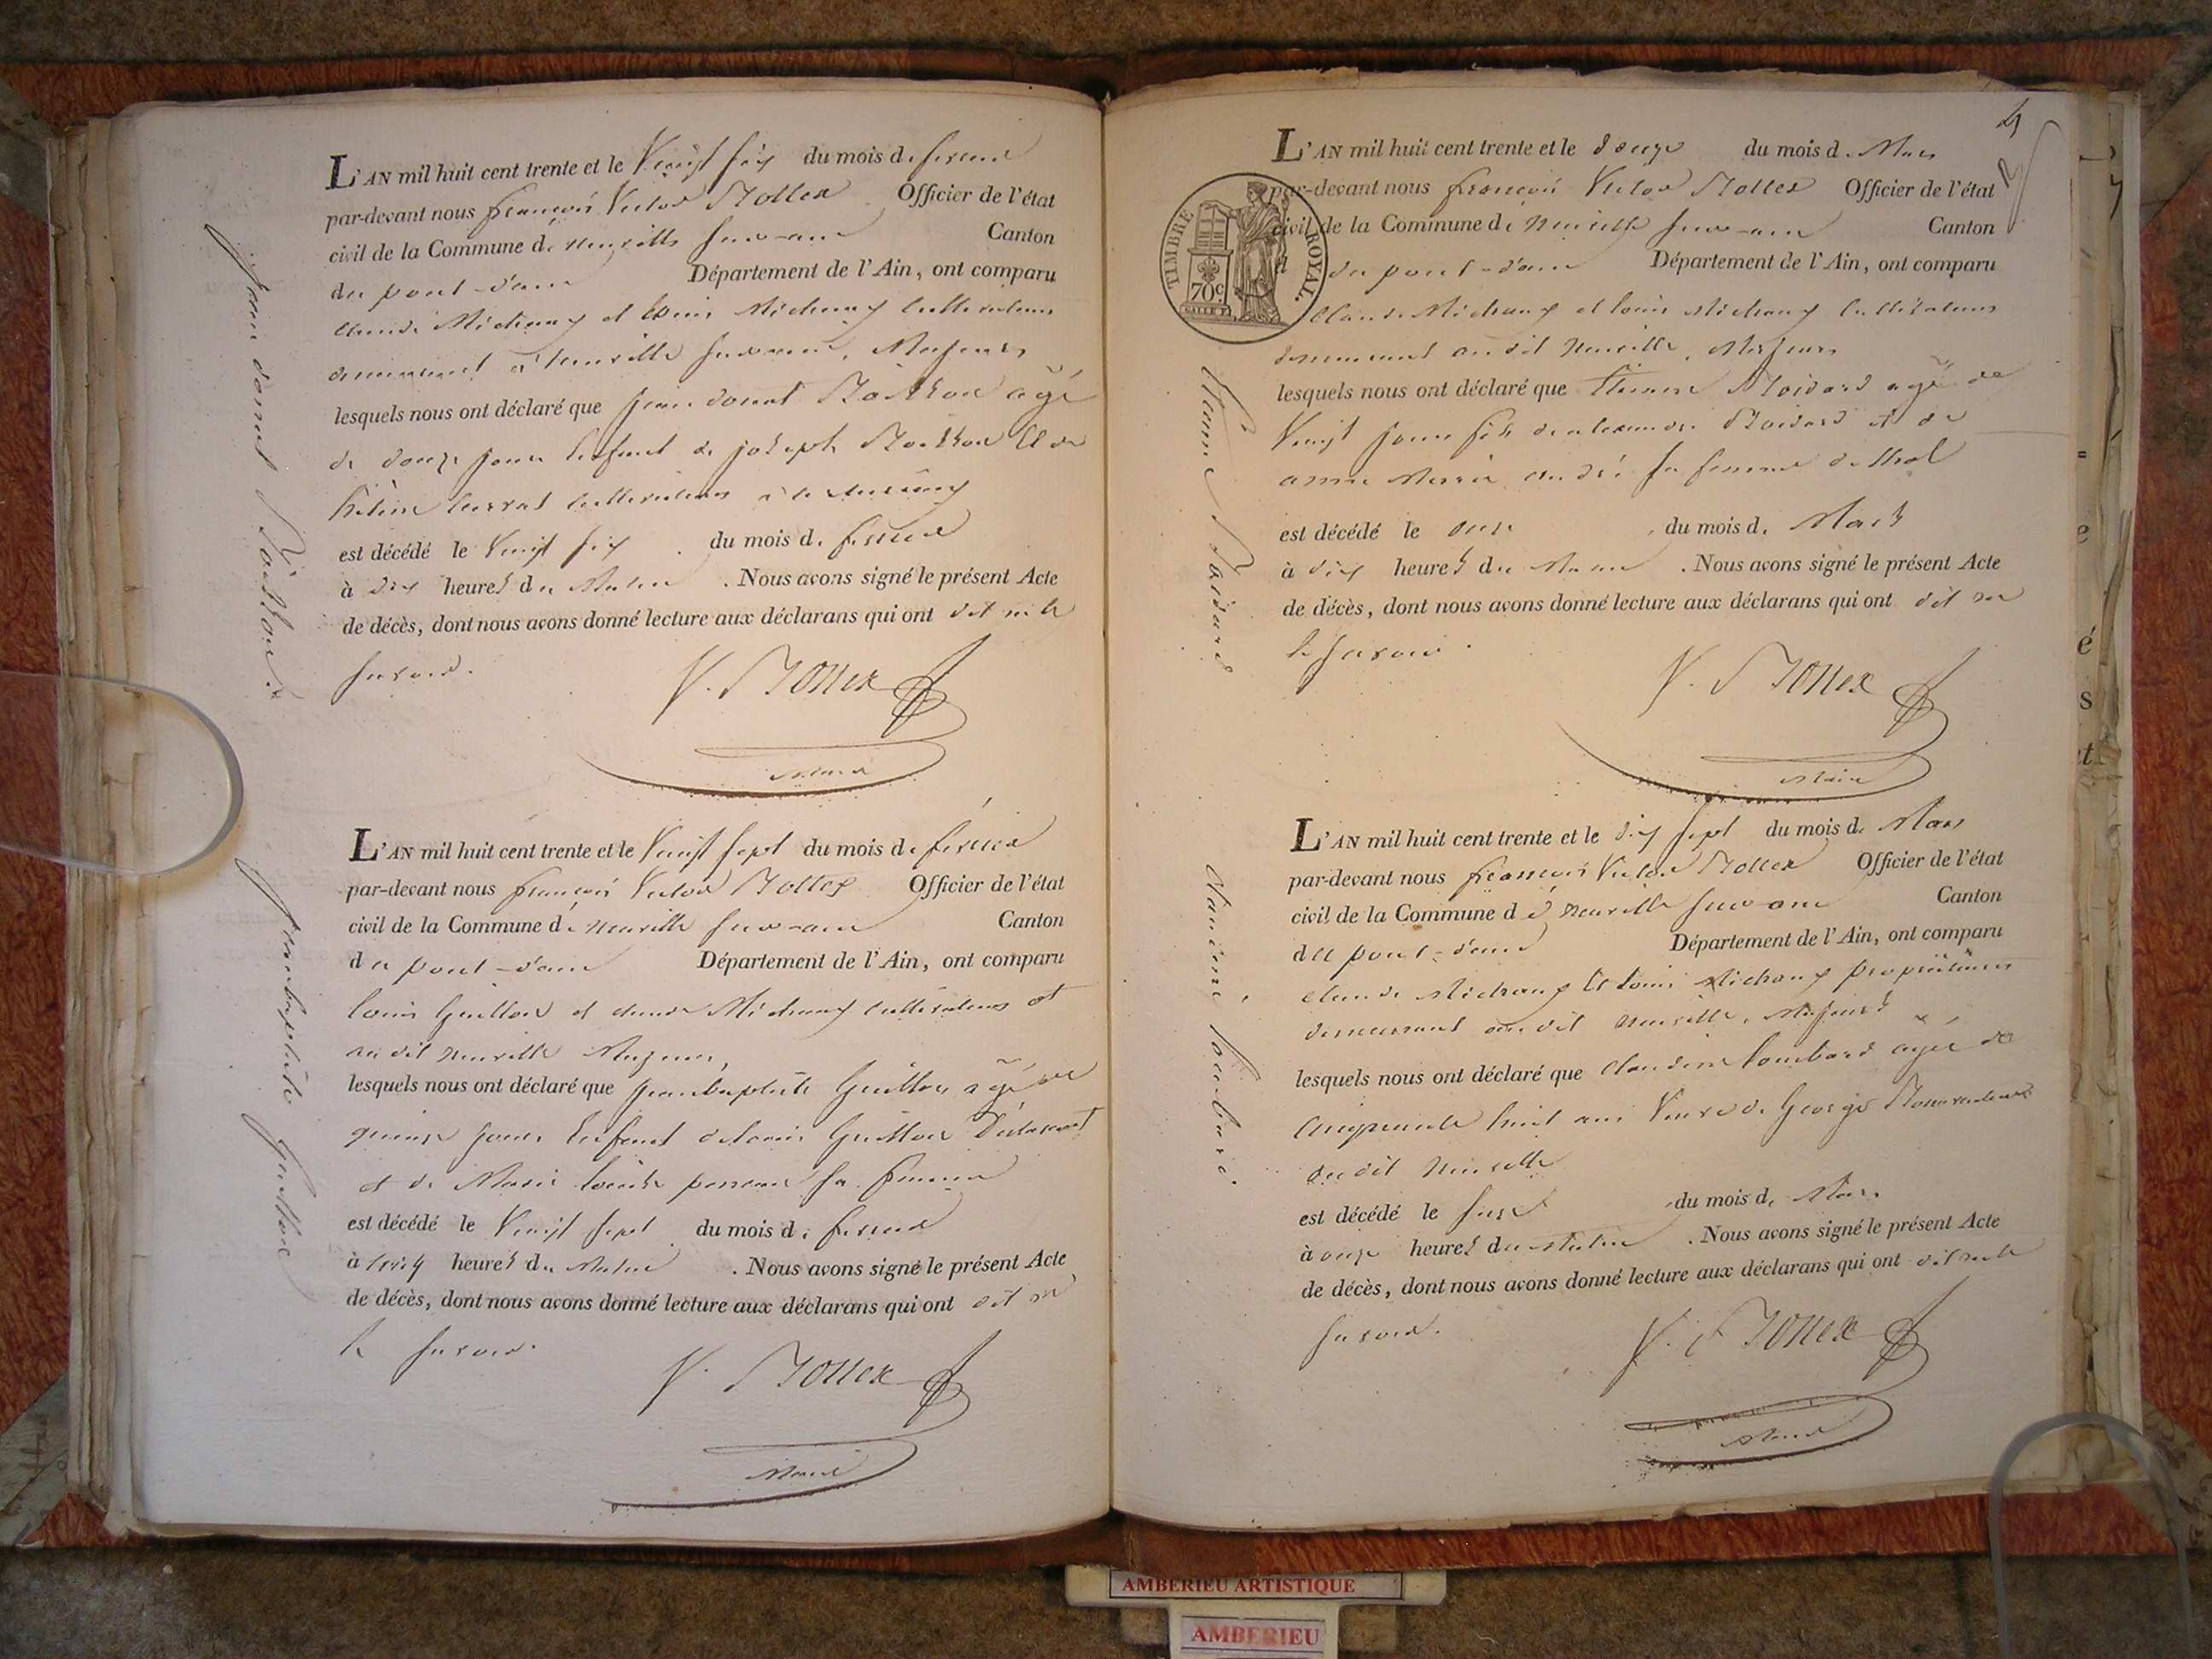 L'AN mil huit cent trente et le Vingt six du mois de fevrier
par-devant nous françois Victor Officier de l'état
civil de la Commune de neuville sur-ain Canton
du pont-d'ain Département de l'Ain, ont comparu
Claude Michaux et Louis Michaux cultivateurs
demeurant à neuville sur ain, Majeurs
lesquels nous ont déclaré que jean donat agé
de douze jours Enfant de joseph Et de
hélène cultivateurs
est décédé le Vingt six du mois de fevrier
à dix heures du Matin . Nous avons signé le présent Acte
de décès, dont nous avons donné lecture aux déclarans qui ont dit ne le
savoir.
Maire
jean donat
L'AN mil huit cent trente et le Vingt sept du mois de fevrier
par-devant nous françois Victor Officier de l'état
civil de la Commune de neuville sur-ain Canton
du pont-d'ain Département de l'Ain, ont comparu
Louis Guillon et claude Michaux cultivateurs et
au dit neuville Majeurs,
lesquels nous ont déclaré que jean baptiste Guillon agé de
quinze jours Enfant de Louis Guillon
et de Marie Louise sa femme
est décédé le Vingt sept du mois de fevrier
à cinq heures du Matin . Nous avons signé le présent Acte
de décès, dont nous avons donné lecture aux déclarans qui ont dit ne
le savoir.
Maire
jean baptiste Guillon
4
TIMBRE ROYAL.
70c
GALLE F.
L'AN mil huit cent trente et le douze du mois de Mars
par-devant nous françois Victor Officier de l'état
civil de la Commune de Neuville sur-ain Canton
du pont-d'ain Département de l'Ain, ont comparu
Claude Michaux et Louis Michaux cultivateurs
demeurant au dit Neuville, Majeurs
lesquels nous ont déclaré que agé de
Vingt jours fils de alexandre et de
anne Marie andré sa femme de thol
est décédé le onze du mois de Mars
à dix heures du Matin . Nous avons signé le présent Acte
de décès, dont nous avons donné lecture aux déclarans qui ont dit ne
le savoir.
Maire
L'AN mil huit cent trente et le dix sept du mois de Mars
par-devant nous françois Victor Officier de l'état
civil de la Commune de neuville sur-ain Canton
du pont-d'ain Département de l'Ain, ont comparu
claude Michaux Et Louis Michaux propriétaires
demeurant au dit neuville, Majeurs
lesquels nous ont déclaré que Claudine Lombard agée de
Cinquante huit ans Veuve de George
au dit Neuville
est décédé le seize du mois de Mars
à onze heures du Matin . Nous avons signé le présent Acte
de décès, dont nous avons donné lecture aux déclarans qui ont dit ne le
savoir.
Maire
Claudine Lombard.
AMBERIEU ARTISTIQUE
AMBERIEU